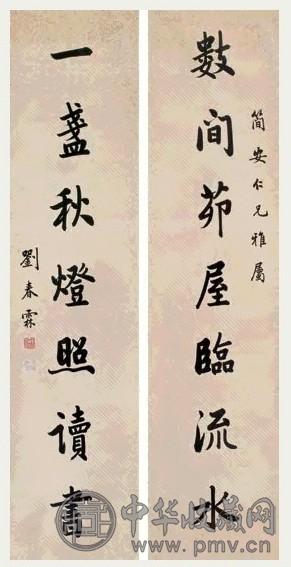 簡安仁兄雅屬
數間茆屋臨流水
一盞秋燈照讀書
劉春霖
中华收藏网
www.pmv.cn